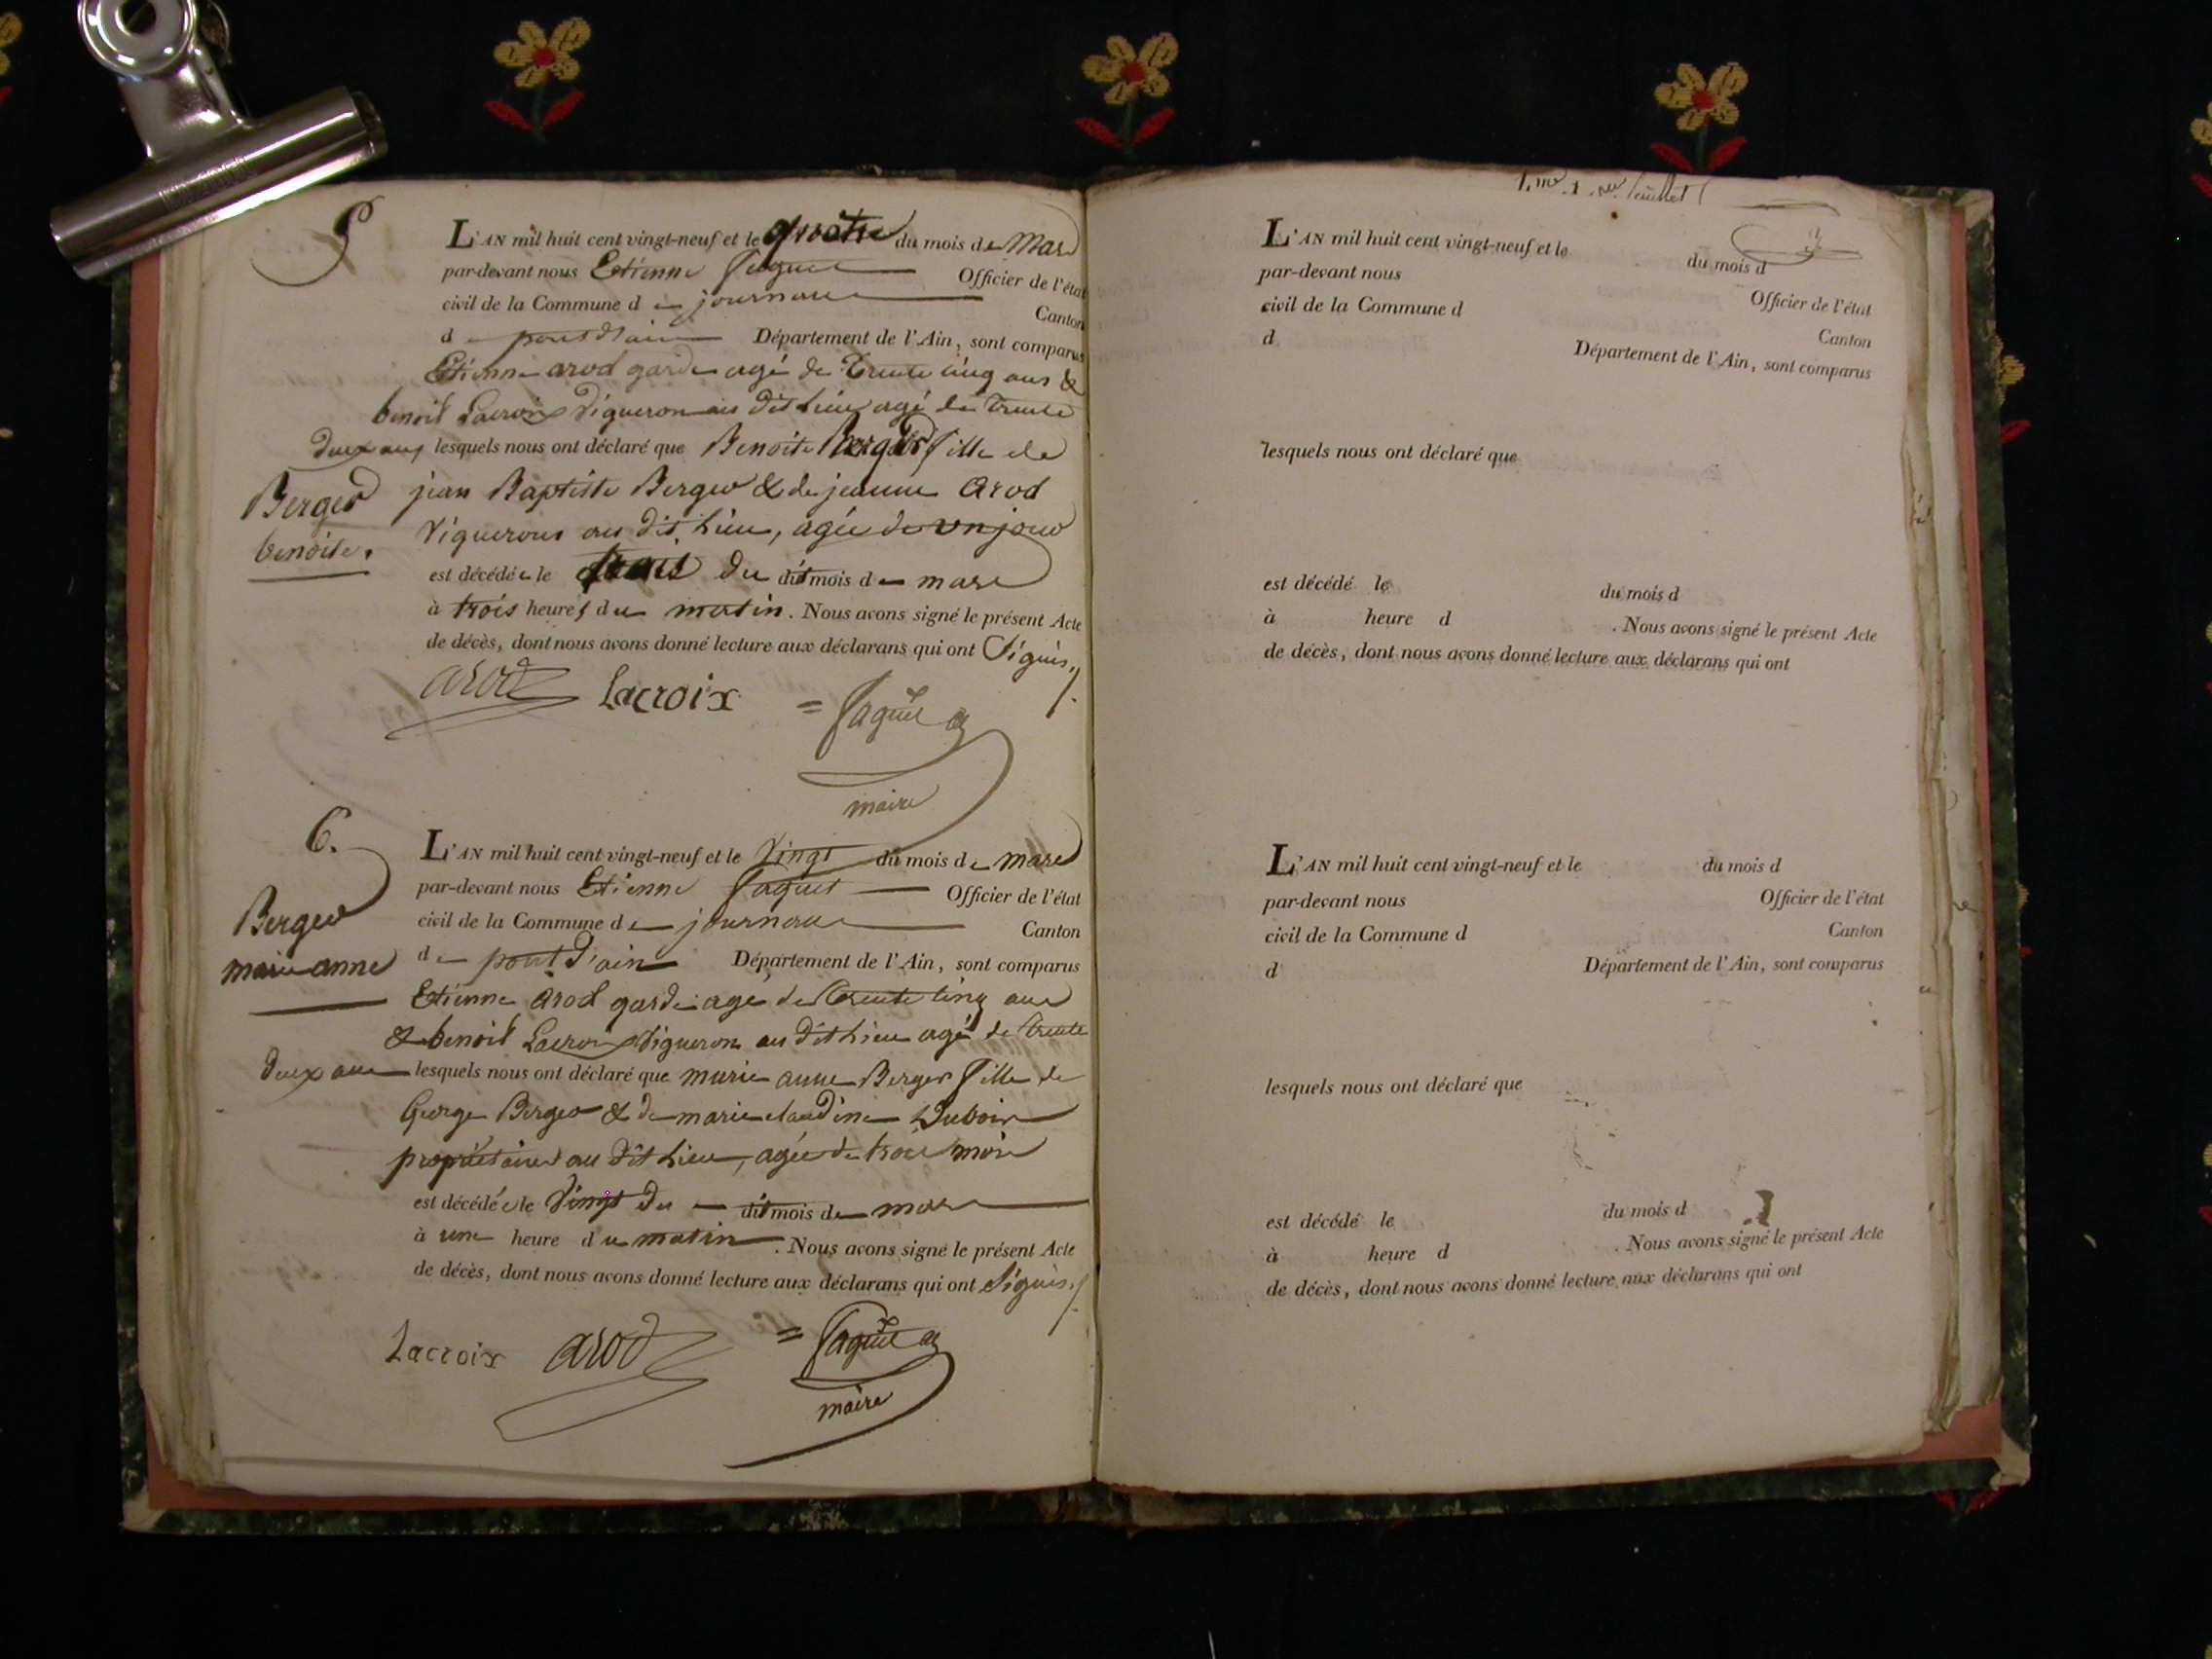 5
L'AN mil huit cent vingt-neuf et le quatre du mois de Mars
par-devant nous Etienne Paquet Officier de l'état
civil de la Commune de journans
Canton
de pont d'ain Département de l'Ain, sont comparus
Etienne arod garde agé de Trente cinq ans &
benoit Lacroix Vigneron au dit Lieu agé de Trente
deux ans lesquels nous ont déclaré que Benoite Berger fille de
Berger
benoite.
jean Baptiste Berger & de jeanne Arod
Vignerons au dit Lieu, agée de un jour
est décédée le trois du dit mois de mars
à trois heures du matin. Nous avons signé le présent Acte
de décès, dont nous avons donné lecture aux déclarans qui ont Signés
arod Lacroix = Paquet
maire
6.
L'AN mil huit cent vingt-neuf et le Vingt du mois de mars
par-devant nous Etienne Paquet Officier de l'état
Berger
marie anne
civil de la Commune de journans Canton
de pont d'ain Département de l'Ain, sont comparus
Etienne Arod garde agé de Trente cinq ans
& benoit Lacroix Vigneron au dit Lieu agé de Trente
deux ans lesquels nous ont déclaré que marie anne Berger fille de
George Berger & de marie claudine Dubois
propriétaires au dit Lieu, agée de trois mois
est décédée le Vingt du dit mois de mars
à une heure du matin. Nous avons signé le présent Acte
de décès, dont nous avons donné lecture aux déclarans qui ont Signés
Lacroix arod = Paquet
maire
feuillet
L'AN mil huit cent vingt-neuf et le du mois d
par-devant nous Officier de l'état
civil de la Commune d Canton
d Département de l'Ain, sont comparus
lesquels nous ont déclaré que
est décédé le du mois d
à heure d . Nous avons signé le présent Acte
de décès, dont nous avons donné lecture aux déclarans qui ont
L'AN mil huit cent vingt-neuf et le du mois d
par-devant nous Officier de l'état
civil de la Commune d Canton
d Département de l'Ain, sont comparus
lesquels nous ont déclaré que
est décédé le du mois d
à heure d . Nous avons signé le présent Acte
de décès, dont nous avons donné lecture aux déclarans qui ont